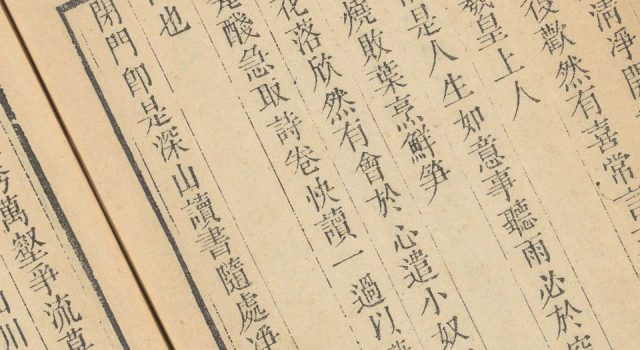 清淨閒
歡然有喜常
皇上人
是人生如意事聽雨必於
燒敗葉烹鮮笋
花落欣然有會於心遣小奴
醆急取詩卷快讀一過以
也
閉門即是深山讀書隨處淨
萬壑爭流草
山川